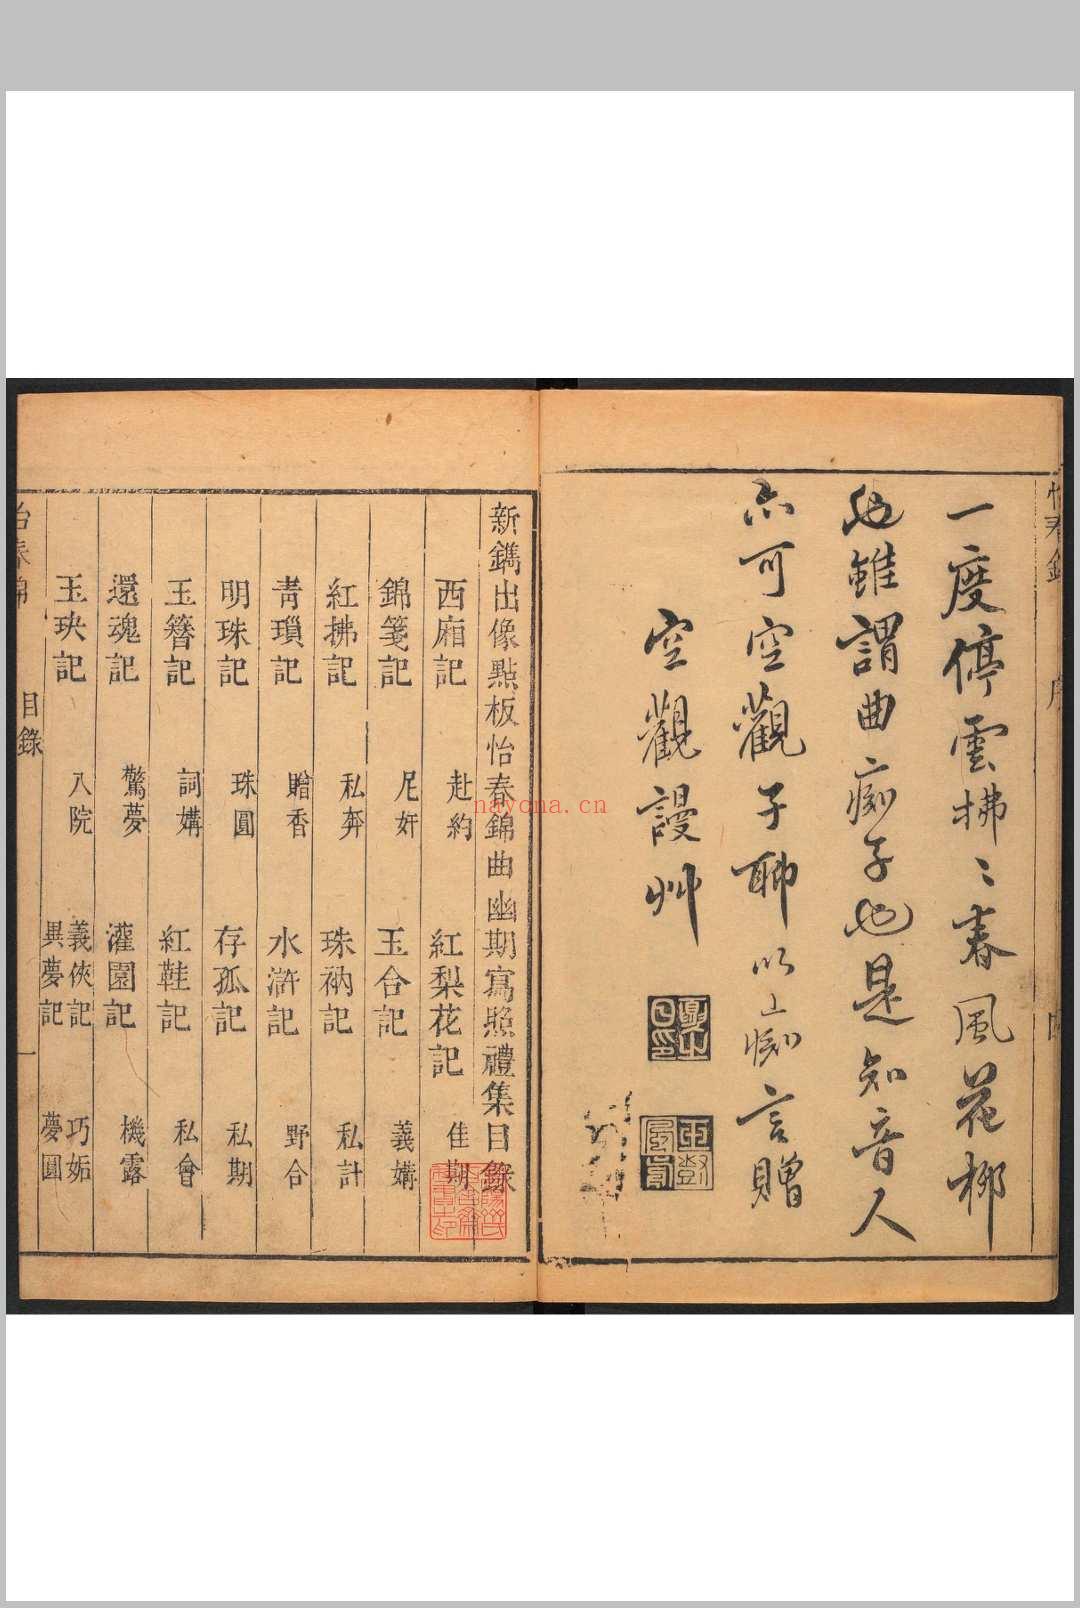 一度停雲拂〻春風花柳
也雖謂曲痴子也是知音人
亦可空觀子聊以痴言贈
空觀謾艸
新鐫出像點板怡春錦曲幽期寫照禮集目錄
西廂記 赴約 紅梨花記 佳期
錦箋記 尼奸 玉合記 義媾
紅拂記 私奔 珠衲記 私計
青瑣記 贈香 水滸記 野合
明珠記 珠圓 存孤記 私期
玉簪記 詞媾 紅鞋記 私會
還魂記 驚夢 灌園記 機露
玉玦記 入院 義俠記 巧姤
異夢記 夢圓
怡春錦 目錄 一
nayona.cn